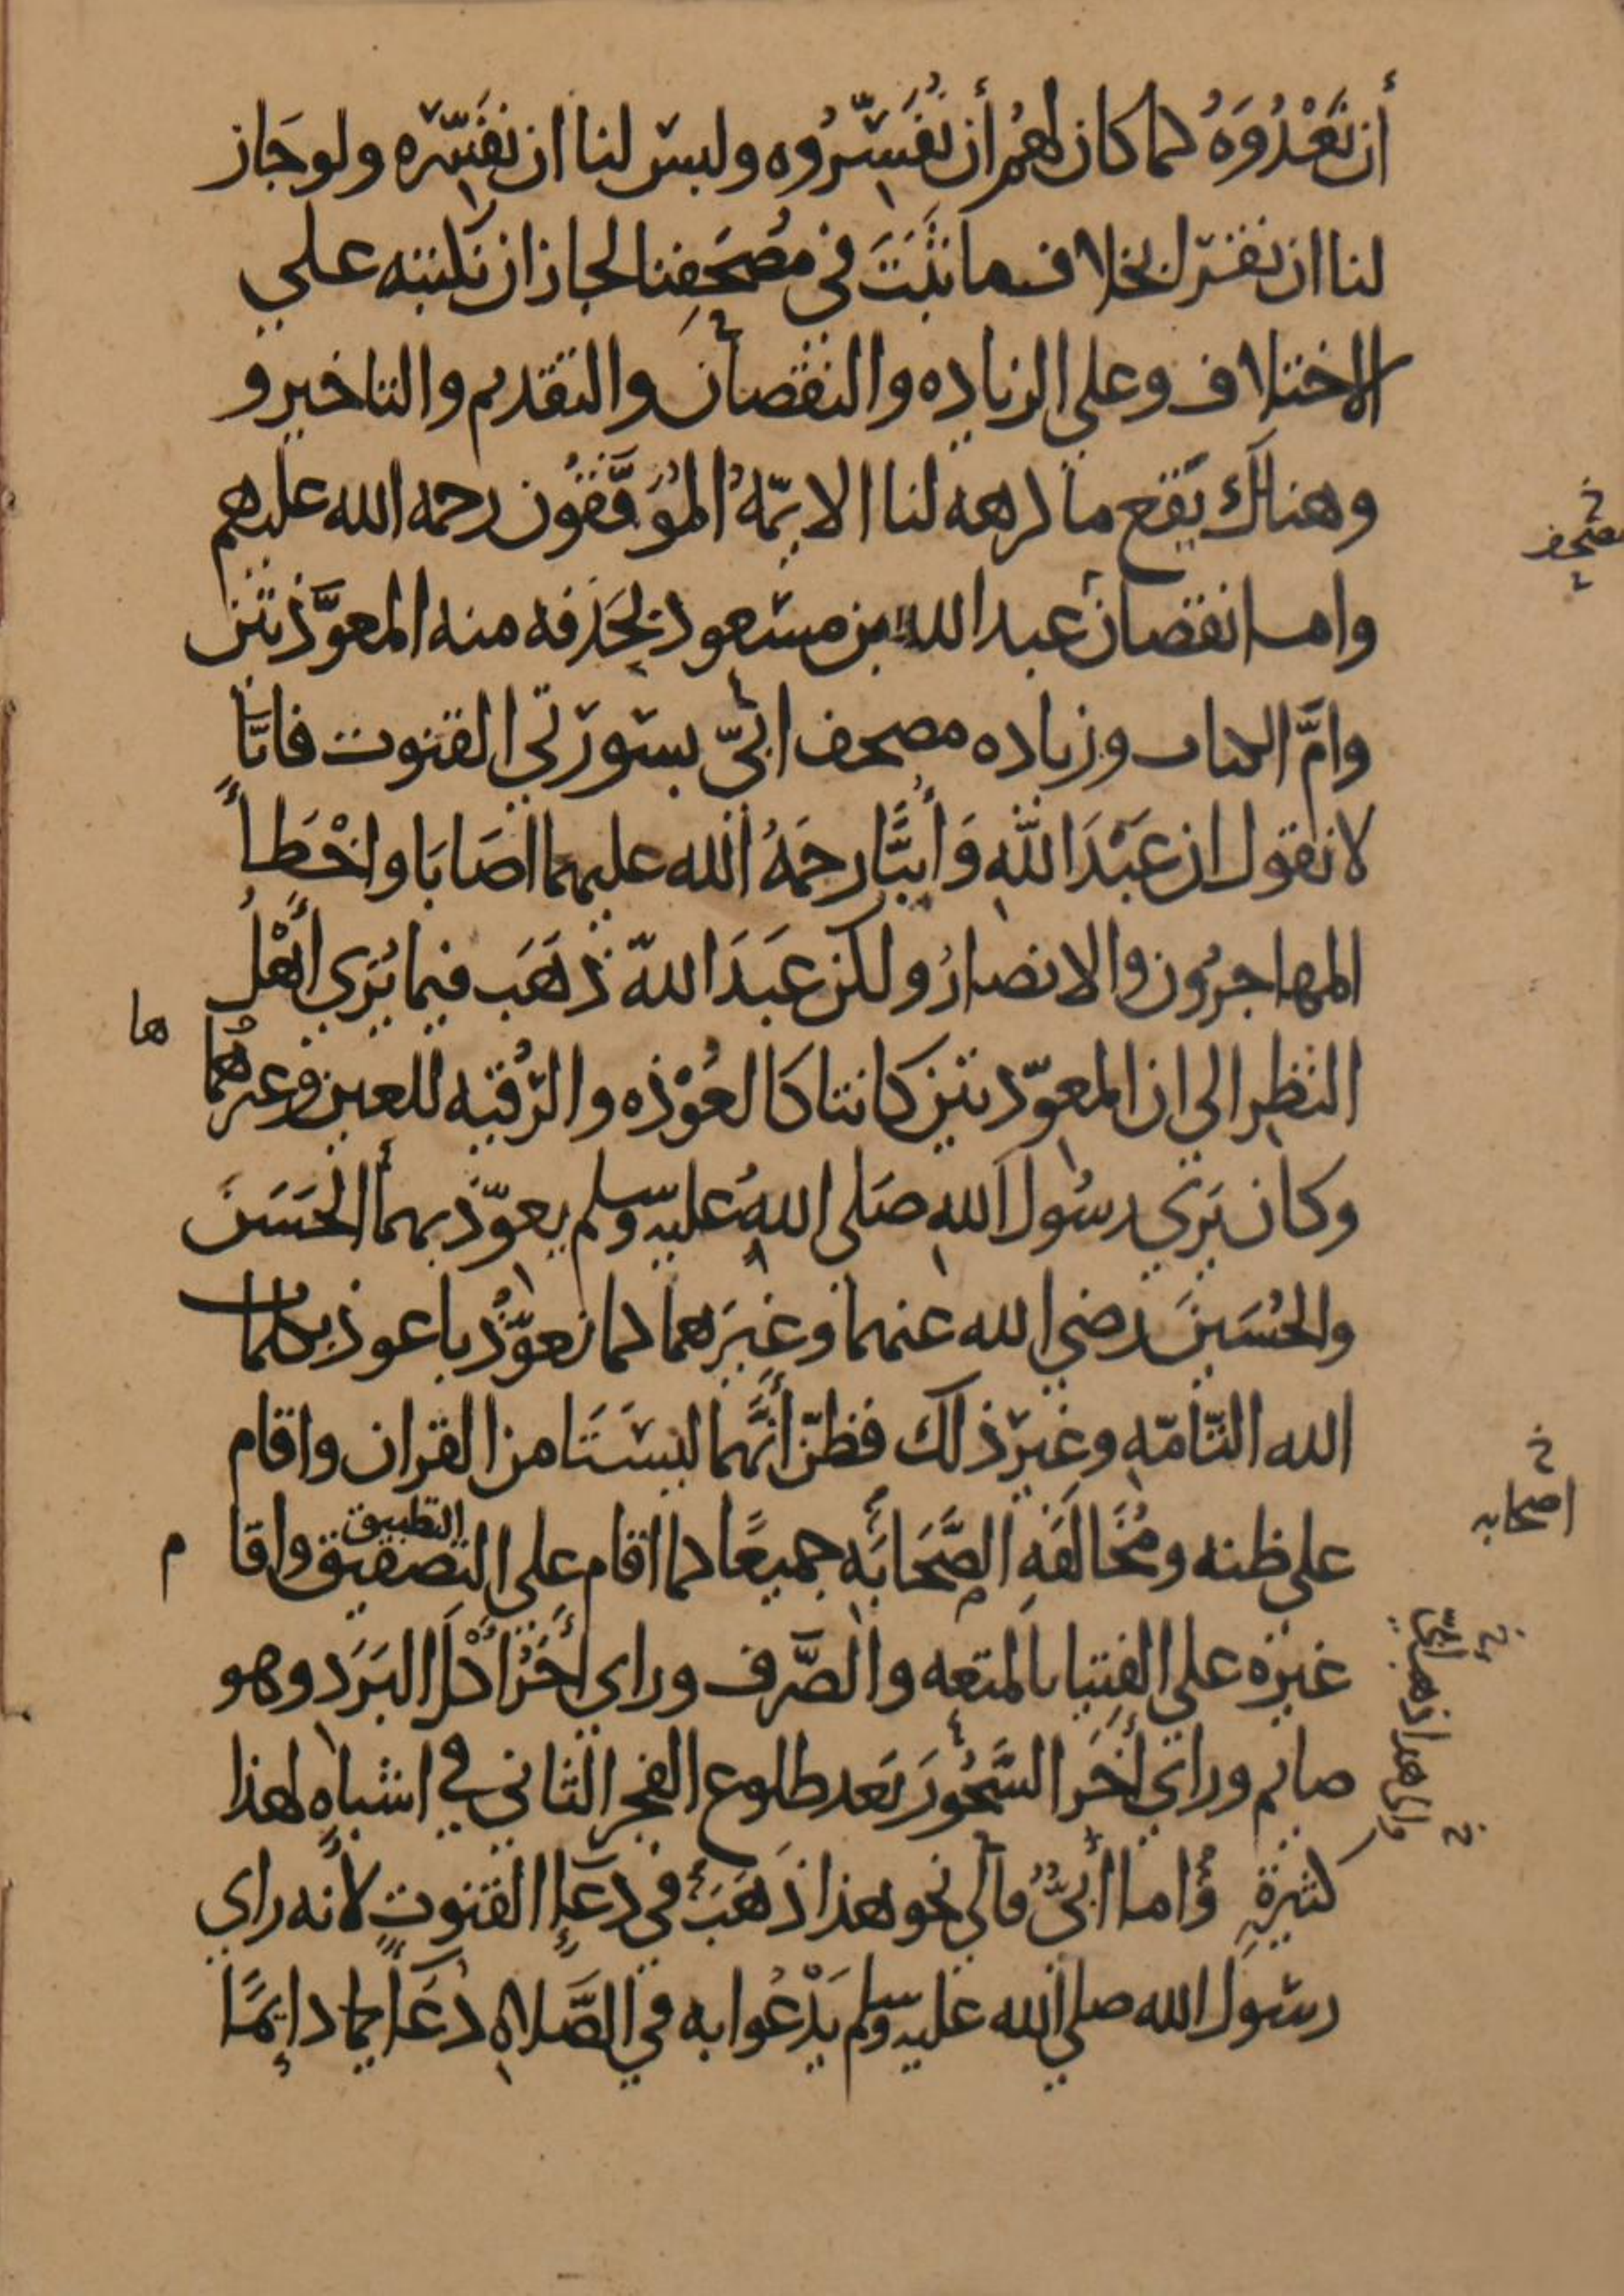 أن نَعْدُوَهُ كما كان لهُم أن يُفَسِّرُوه وليس لنا ان نفسّره ولو جَاز
لنا ان نقرا بخلاف ما ثَبَتَ في مُصْحَفِنا لجاز ان نكتبه علي
الاختلاف وعلي الزياده والنقصان والتقديم والتاخير و
وهناك يَقع ما كرهه لنا الايمّهُ المُوَفَّقُون رحمه الله عليهم
واما نقصان عبد الله بن مسعود بحَذفه منه المعوَّذتين
وامَّ الكتاب وزياده مصحف ابيّ بسورَتي القنوت فانَّا
لا نقول ان عَبْدَ اللّهِ وَأُبَيًّا رحمَهُ الله عليهما اصَابَا واخْطَأَ
المهاجرُون والانصارُ ولكن عَبدَ اللهّ ذهَب فيما يُرَي أَهْلُ
النظرِ الي ان المعوّذتين كانتا كالعُوْذه والرُقيه للعين وغيرهُما
ها
وكان يَرَي رسُول اللهِ صَلي اللهُ عليه وسلم يعوّذ بهما الحَسَنَ
والحُسَينَ رضي الله عنهما وغيرَهما كما يعوّذُ باعوذ بكلمات
الله التّامّهِ وغيرَ ذلك فظنّ أنَّهما ليسَتَا من القران واقام
علي ظنه ومُخَالَفَهِ الصَّحَابَهِ جميعًا كما اقام علي التصفيق واقا
التطبيق
م
غيرُه علي الفتيا بالمتعه والصَّرف وراي اخَرُ اكْلَ البَرَد وهو
صايم وراي اخَر السَّحُورَ بَعد طلوع الفجر الثاني في اشباهٍ لهذا
كثيرةٍ وُاما أبيٌّ فالي نحو هذا ذَهَبَ في دعَاءِ القنوتِ لأنه راي
رسول الله صلي الله عليه وسلم يَدْعُوا به في الصَّلاهِ دُعَاءً دايمًا
خ
مصحف
خ
اصحابه
والي هذا ذهب أبيّ